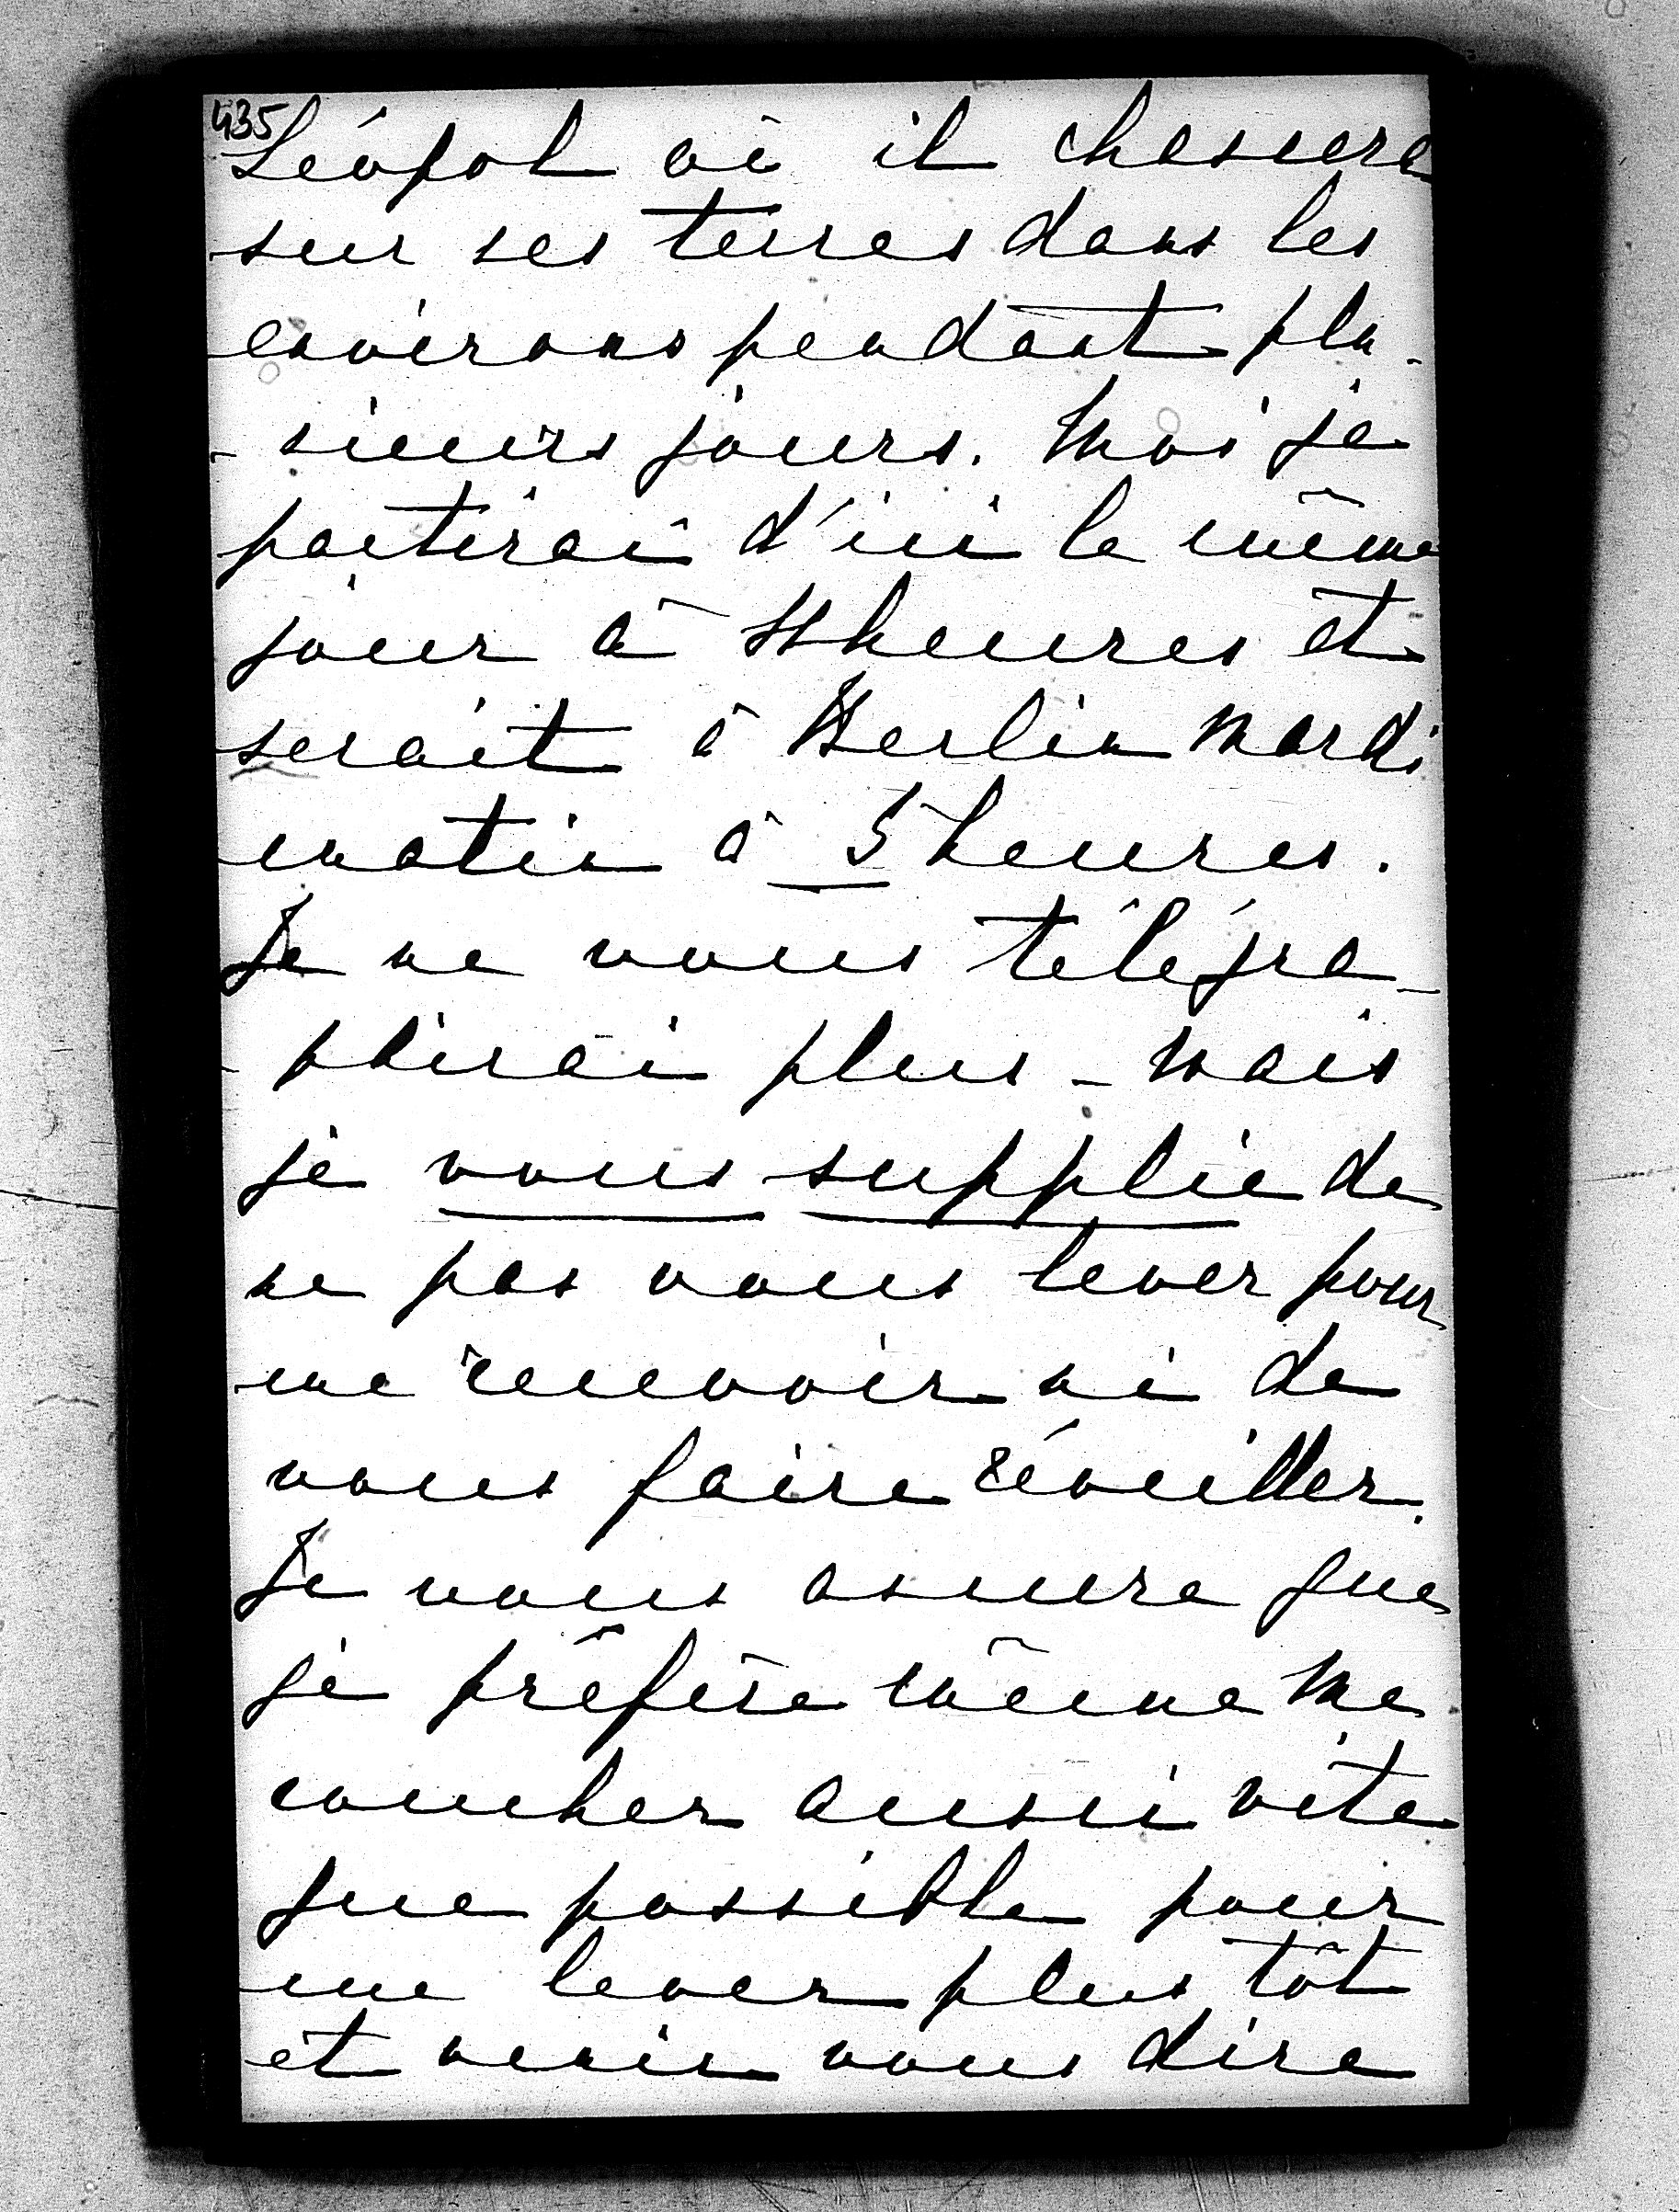 435
Léopol où il chassera
sur ses terres dans les
environs pendant plu-
-sieurs jours. Moi je
partirai d'ici le même
jour à 4 heures et
serait à Berlin Mardi
matin à 5 heures.
Je ne vous télégra-
-phirai plus - mais
je vous supplie de
ne pas vous lever pour
me recevoir ni de
vous faire réveiller.
Je vous assure que
je préfère même me
coucher aussi vite
que possible pour
me lever plus tôt
et venir vous dire